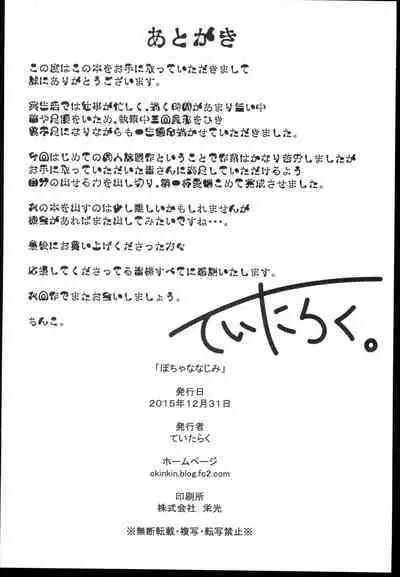 あとがき
この度はこの本をお手に取っていただきまして
誠にありがとうございます。
くなりながらも
せていただきました。
今回はじめての個人誌製作ということで作業はかなり苦労しましたが
お手に取っていただいた皆さんに満足していただけるよう
自分の出せる力を出し切り、
こめて完成させました。
次の本を出すのは少し難しいかもしれませんが
機会があればまた出してみたいですね・・・。
最後にお買い上げくださった方々
応援してくださってる皆様すべてに感謝いたします。
次回作でまたお会いしましょう。
ちんこ。
ていたらく。
「ぽちゃななじみ」
発行日
2015年12月31日
発行者
ていたらく
ホームページ
okinkin.blog.fc2.com
印刷所
株式会社 栄光
※無断転載・複写・転写禁止※